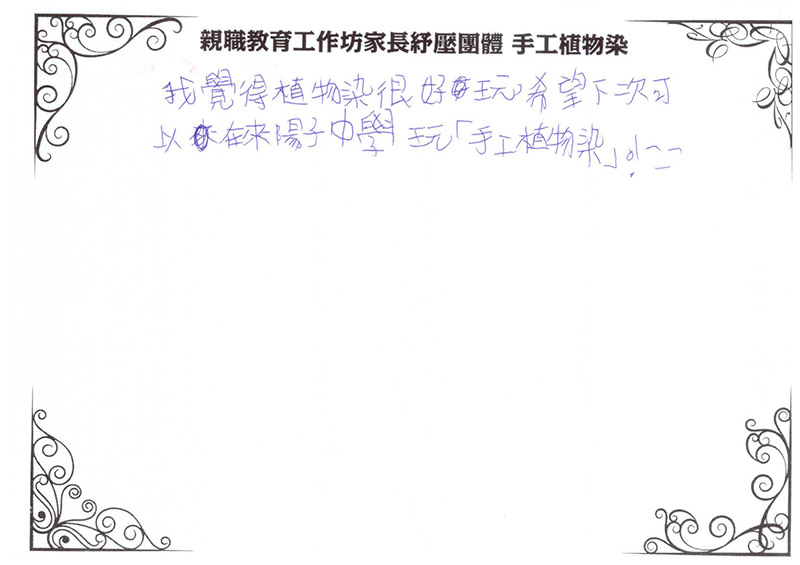 親職教育工作坊家長紓壓團體 手工植物染
我覺得植物染很好玩希望下次可
以在來陽子中學玩「手工植物染」。!二二